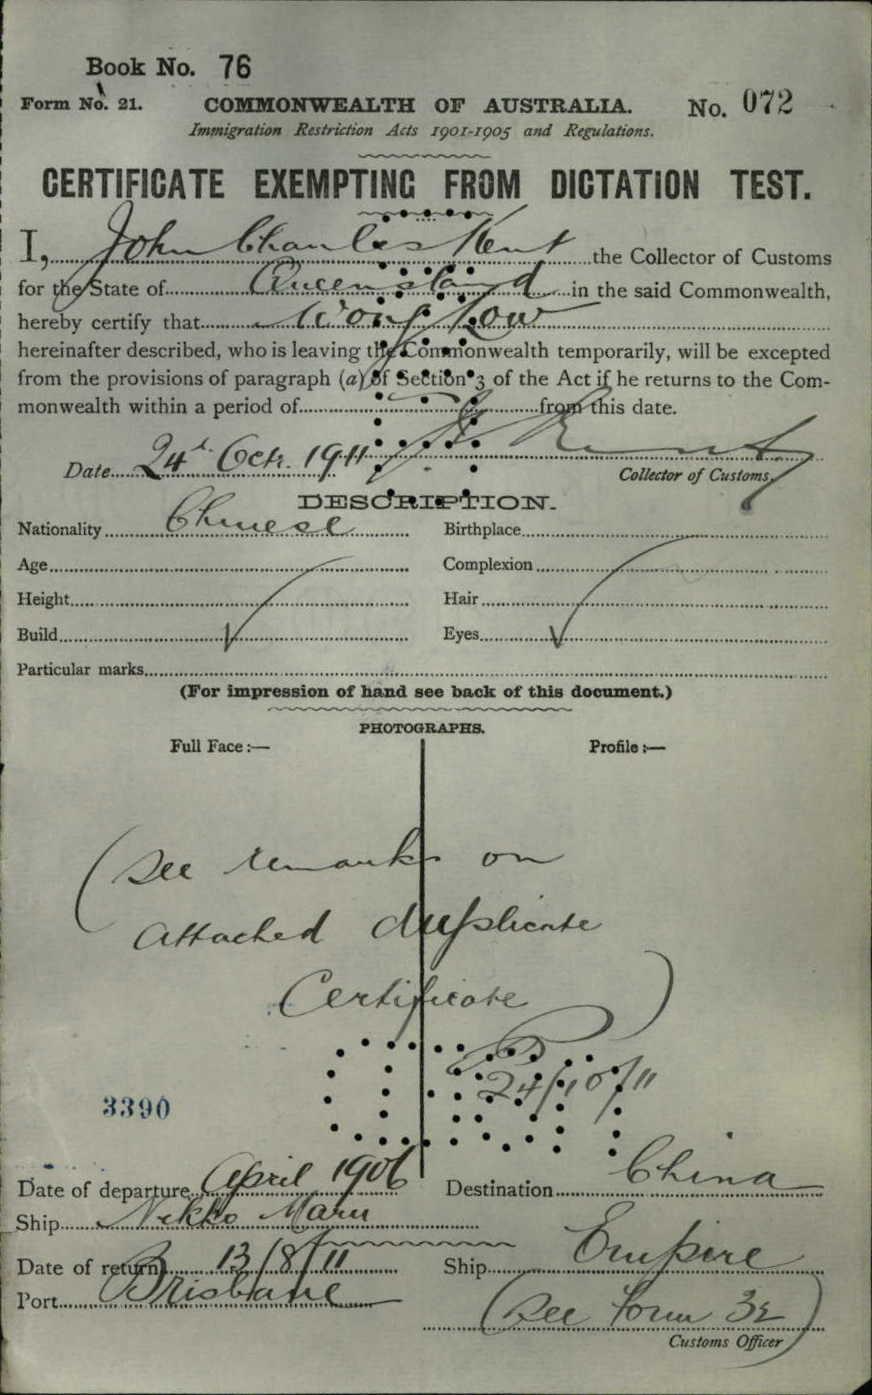 Book No. 76
Form No. 21. COMMONWEALTH OF AUSTRALIA. No. 072
Immigration Restriction Acts 1901-1905 and Regulations.
CERTIFICATE EXEMPTING FROM DICTATION TEST.
I, John Charles Kent the Collector of Customs
for the State of Queensland in the said Commonwealth,
hereby certify that Wong Low
hereinafter described, who is leaving the Commonwealth temporarily, will be excepted
from the provisions of paragraph (a) of Section 3 of the Act if he returns to the Com-
monwealth within a period of from this date.
Date 24th Octr. 1911 Kent
Collector of Customs.
DESCRIPTION.
Nationality Chinese Birthplace
Age Complexion
Height Hair
Build Eyes
Particular marks
(For impression of hand see back of this document.)
PHOTOGRAPHS.
Full Face :— Profile :—
(See remarks on
attached duplicate
Certificate)
24/10/11
3390
Date of departure April 1906 Destination China
Ship Nikko Maru
Date of return 13/8/11 Ship Empire
Port Brisbane (See Form 32)
Customs Officer